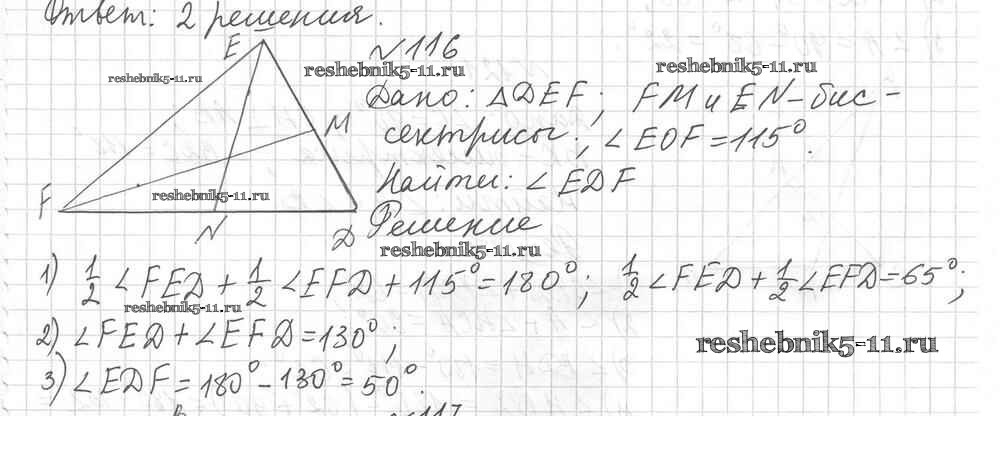 Ответ: 2 решения.
E
№116
reshebnik5-11.ru
reshebnik5-11.ru
reshebnik5-11.ru
Дано: △DEF; FM и EN – бис-
M
сектрисы; ∠EOF = 115°.
Найти: ∠EDF
F
reshebnik5-11.ru
N
D
Решение
reshebnik5-11.ru
1) 1/2 ∠FED + 1/2 ∠EFD + 115° = 180°; 1/2 ∠FED + 1/2 ∠EFD = 65°;
reshebnik5-11.ru
2) ∠FED + ∠EFD = 130°;
reshebnik5-11.ru
3) ∠EDF = 180° – 130° = 50°.
№117